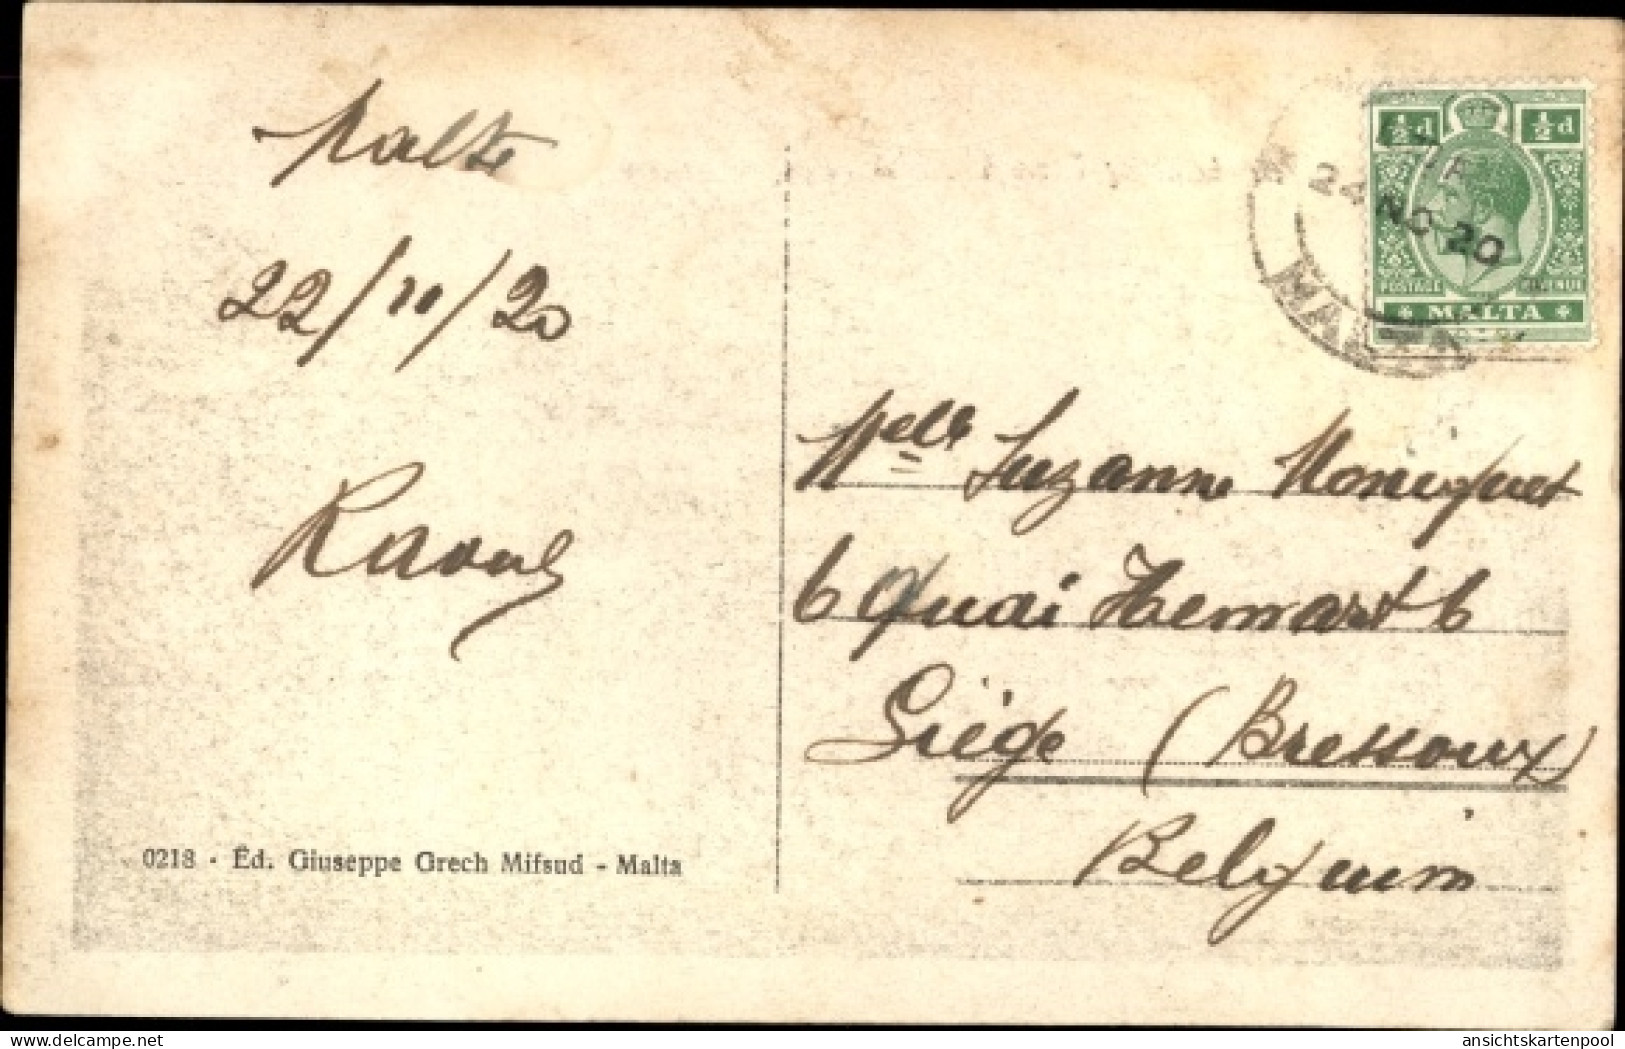 Malte
22/11/20
Raoul
0218 - Ed. Giuseppe Grech Mifsud - Malta
½d ½d
POSTAGE REVENUE
* MALTA *
24 NO 20
MALTA
Melle Suzanne Moniquet
6 Quai Hemart 6
Liége (Bressoux)
Belgium
delcampe.net
ansichtskartenpool